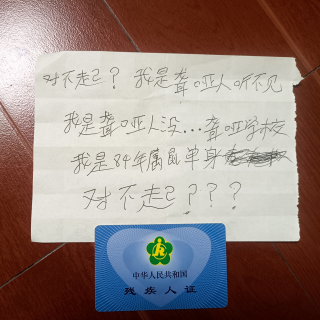 对不起? 我是聋哑人听不见
我是聋哑人没...聋哑学校
我是84年属鼠单身
对不起???
中华人民共和国
残疾人证